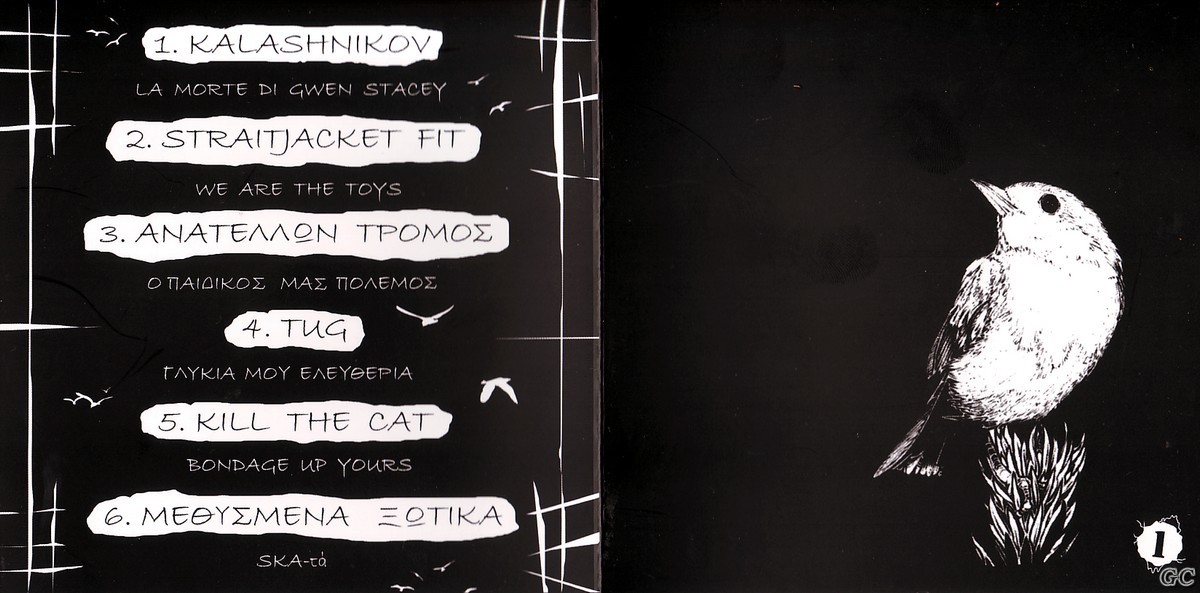 1. KALASHNIKOV
LA MORTE DI GWEN STACEY
2. STRAITJACKET FIT
WE ARE THE TOYS
3. ΑΝΑΤΕΛΛΩΝ ΤΡΟΜΟΣ
Ο ΠΑΙΔΙΚΟΣ ΜΑΣ ΠΟΛΕΜΟΣ
4. TUG
ΓΛΥΚΙΑ ΜΟΥ ΕΛΕΥΘΕΡΙΑ
5. KILL THE CAT
BONDAGE UP YOURS
6. ΜΕΘΥΣΜΕΝΑ ΞΩΤΙΚΑ
SKA-τά
1
GC